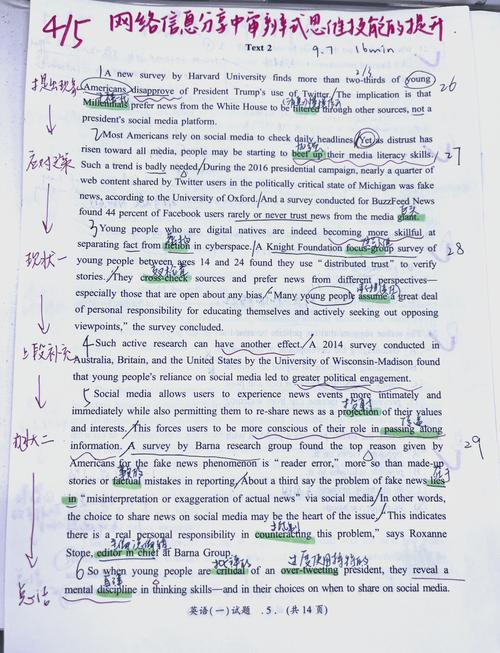 4/5 网络信息分享中审判式思维技能的提升
Text 2 9.7 16min
1 A new survey by Harvard University finds more than two-thirds of young 2/3
Americans disapprove of President Trump's use of Twitter. The implication is that 26
Millennials prefer news from the White House to be filtered through other sources, not a
president's social media platform.
提出现象
2 Most Americans rely on social media to check daily headlines. Yet as distrust has
risen toward all media, people may be starting to beef up their media literacy skills. 27
加强
Such a trend is badly needed. During the 2016 presidential campaign, nearly a quarter of
web content shared by Twitter users in the politically critical state of Michigan was fake
news, according to the University of Oxford. And a survey conducted for BuzzFeed News
found 44 percent of Facebook users rarely or never trust news from the media giant.
3 Young people who are digital natives are indeed becoming more skillful at
separating fact from fiction in cyberspace. A Knight Foundation focus-group survey of 28
现状一
young people between ages 14 and 24 found they use "distributed trust" to verify
stories. They cross-check sources and prefer news from different perspectives—
especially those that are open about any bias. Many young people assume a great deal
of personal responsibility for educating themselves and actively seeking out opposing
viewpoints," the survey concluded.
上段补充
4 Such active research can have another effect. A 2014 survey conducted in
Australia, Britain, and the United States by the University of Wisconsin-Madison found
that young people's reliance on social media led to greater political engagement.
5 Social media allows users to experience news events more intimately and
immediately while also permitting them to re-share news as a projection of their values
and interests. This forces users to be more conscious of their role in passing along
information. A survey by Barna research group found the top reason given by 29
Americans for the fake news phenomenon is "reader error," more so than made-up
stories or factual mistakes in reporting. About a third say the problem of fake news lies
in "misinterpretation or exaggeration of actual news" via social media. In other words,
the choice to share news on social media may be the heart of the issue. "This indicates
there is a real personal responsibility in counteracting this problem," says Roxanne
Stone, editor in chief at Barna Group.
过度使用推特的
6 So when young people are critical of an over-tweeting president, they reveal a
总结
mental discipline in thinking skills—and in their choices on when to share on social media.
英语(一)试题 .5. (共14页)